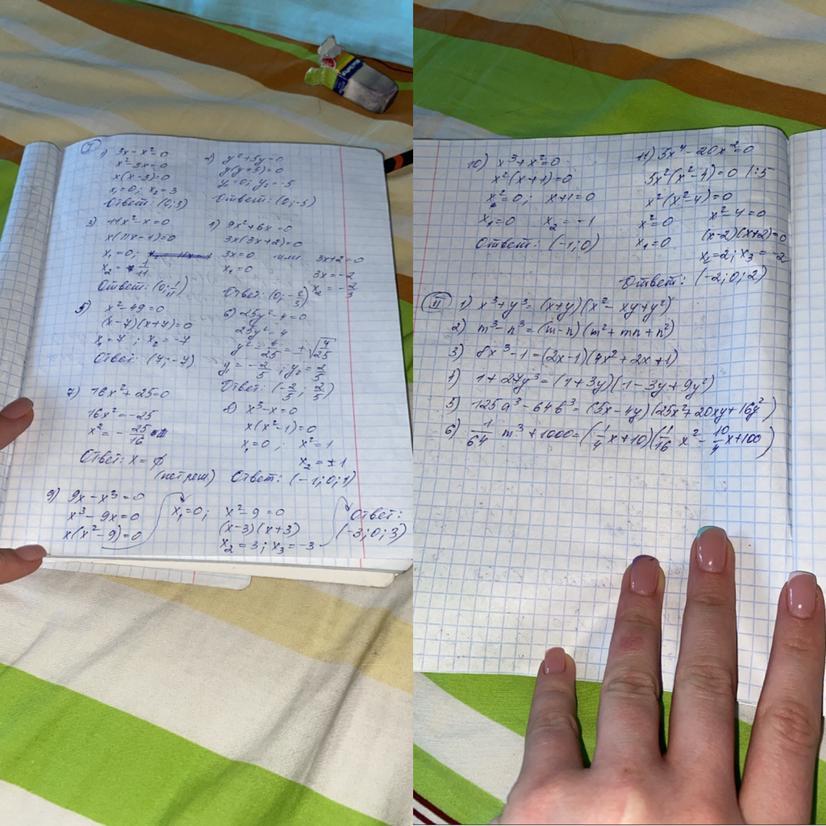 I
1) 3x - x² = 0
x² - 3x = 0
x(x-3) = 0
x₁ = 0; x₂ = 3
Ответ: (0; 3)
2) y² + 5y = 0
y(y+5) = 0
y₁ = 0; y₂ = -5
Ответ: (0; -5)
3) 11x² - x = 0
x(11x - 1) = 0
x₁ = 0;
x₂ = 1/11
Ответ: (0; 1/11)
4) 9x² + 6x = 0
3x(3x+2) = 0
3x = 0 или 3x+2 = 0
x₁ = 0
3x = -2
x₂ = -2/3
Ответ: (0; -2/3)
5) x² - 49 = 0
(x-7)(x+7) = 0
x₁ = 7; x₂ = -7
Ответ: (7; -7)
6) 25y² - 4 = 0
25y² = 4
y² = 4/25 = ±√4/25
y₁ = -2/5; y₂ = 2/5
Ответ: (-2/5; 2/5)
7) 16x² + 25 = 0
16x² = -25
x² = -25/16
Ответ: x = ∅
(нет реш)
8) x³ - x = 0
x(x² - 1) = 0
x₁ = 0; x² = 1
x₂ = ±1
Ответ: (-1; 0; 1)
9) 9x - x³ = 0
x³ - 9x = 0
x(x² - 9) = 0
x₁ = 0; x² - 9 = 0
(x-3)(x+3)
x₂ = 3; x₃ = -3
Ответ:
(-3; 0; 3)
10) x³ + x² = 0
x²(x+1) = 0
x² = 0; x+1 = 0
x₁ = 0 x₂ = -1
Ответ: (-1; 0)
11) 5x⁴ - 20x² = 0
5x²(x² - 4) = 0 |:5
x²(x² - 4) = 0
x² = 0 x² - 4 = 0
x₁ = 0 (x-2)(x+2) = 0
x₂ = 2; x₃ = -2
Ответ: (-2; 0; 2)
II 1) x³ + y³ = (x+y)(x² - xy + y²)
2) m³ - n³ = (m-n)(m² + mn + n²)
3) 8x³ - 1 = (2x-1)(4x² + 2x + 1)
4) 1 + 27y³ = (1+3y)(1 - 3y + 9y²)
5) 125a³ - 64b³ = (5x - 4y)(25x² + 20xy + 16y²)
6) 1/64 m³ + 1000 = (1/4 x + 10)(1/16 x² - 10/4 x + 100)